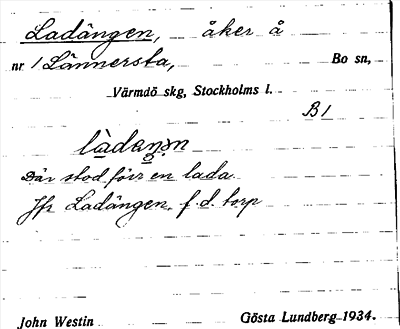 Ladängen, åker å
nr 1 Lännersta, Bo sn,
Värmdö skg, Stockholms l.
B1
Där stod förr en lada
Jfr Ladängen, f.d. torp
John Westin Gösta Lundberg 1934.